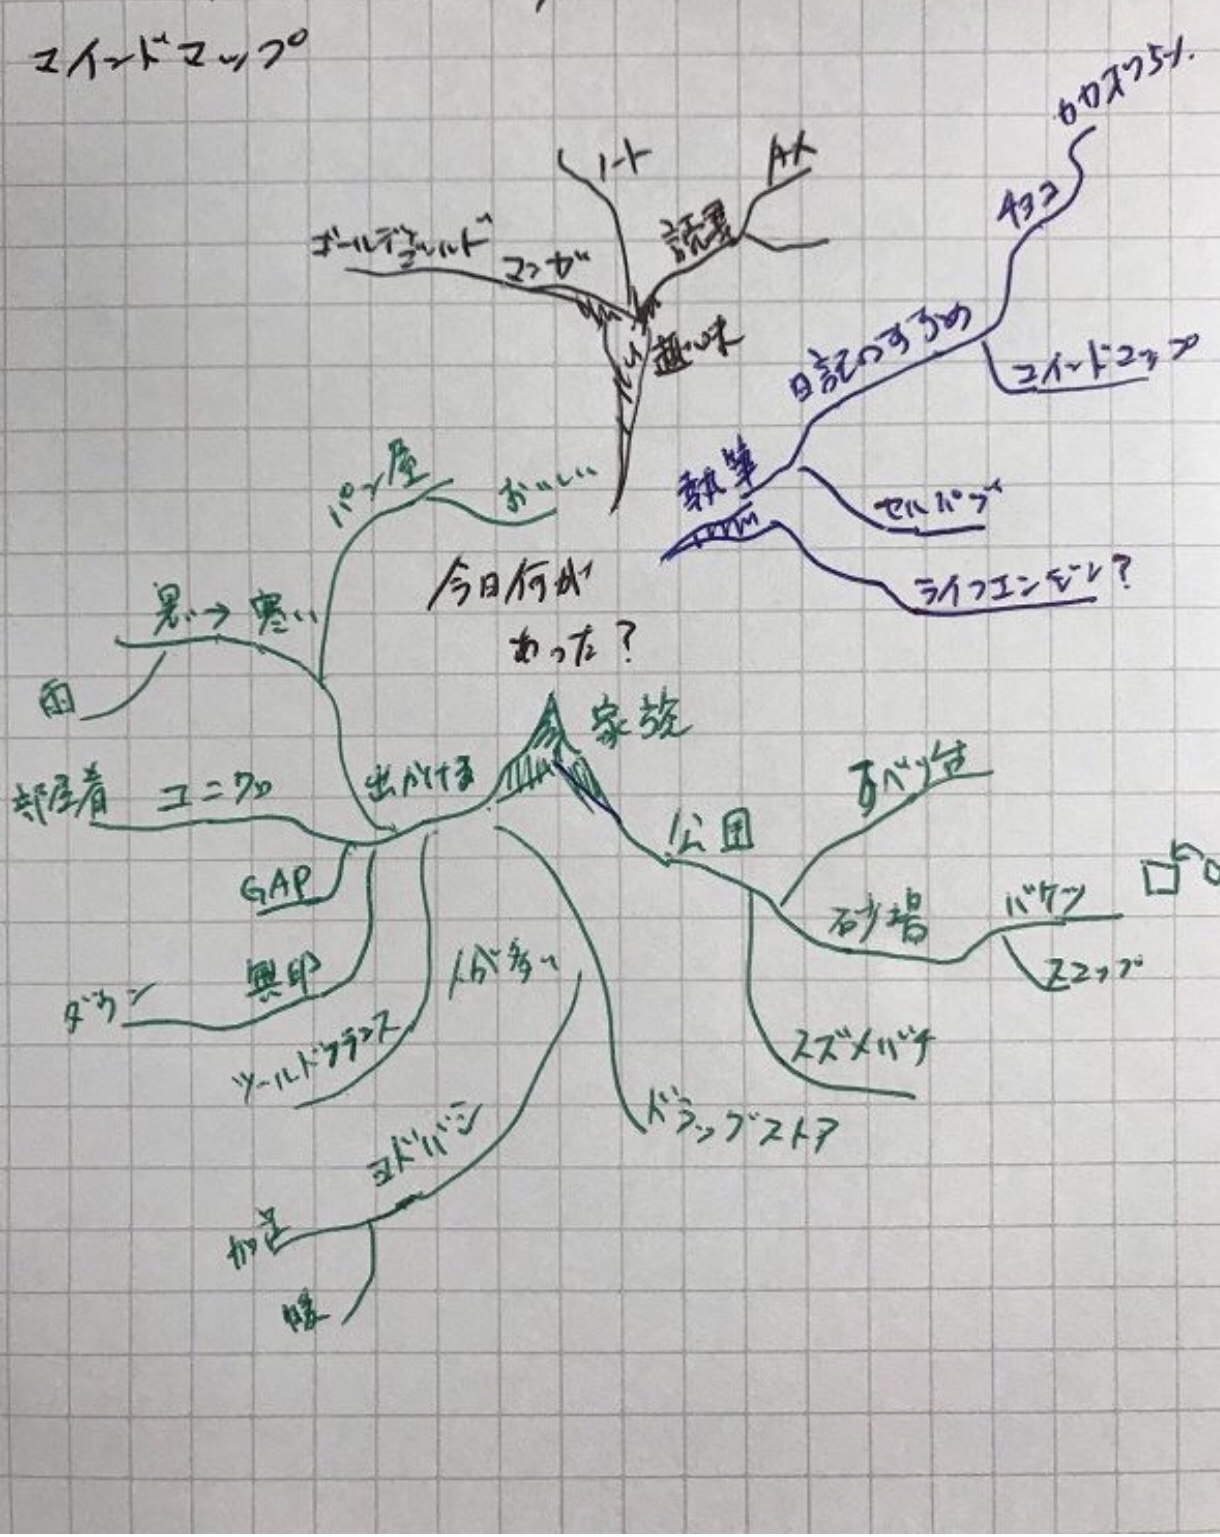 マインドマップ
カカオ75%
ノート
AX
チョコ
読書
ゴールデンゴールド
マンガ
趣味
日記のすすめ
マインドマップ
執筆
セルパブ
ライフエンジン?
パン屋
おいしい
今日何が
あった?
暑い→寒い
雨
家族
出かける
部屋着 ユニクロ
公園
すべり台
GAP
砂場
バケツ
スコップ
無印
ダウン
人が多い
ツールドフランス
スズメバチ
ドラッグストア
ヨドバシ
暖